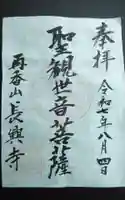 奉拝
令和七年八月四日
聖観世音菩薩
再吞山長興寺